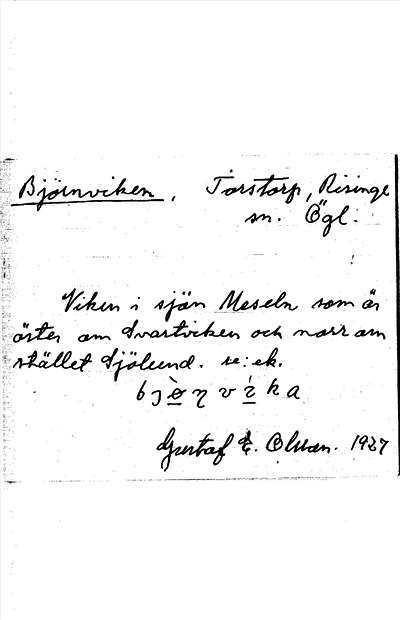 Björnviken, Torstorp, Risinge
sn. Ögl.
Viken i sjön Meseln som är
öster om Svartviken och norr om
stället Sjölund. se: ek.
bjøηvika
Gustaf E. Olsson. 1927